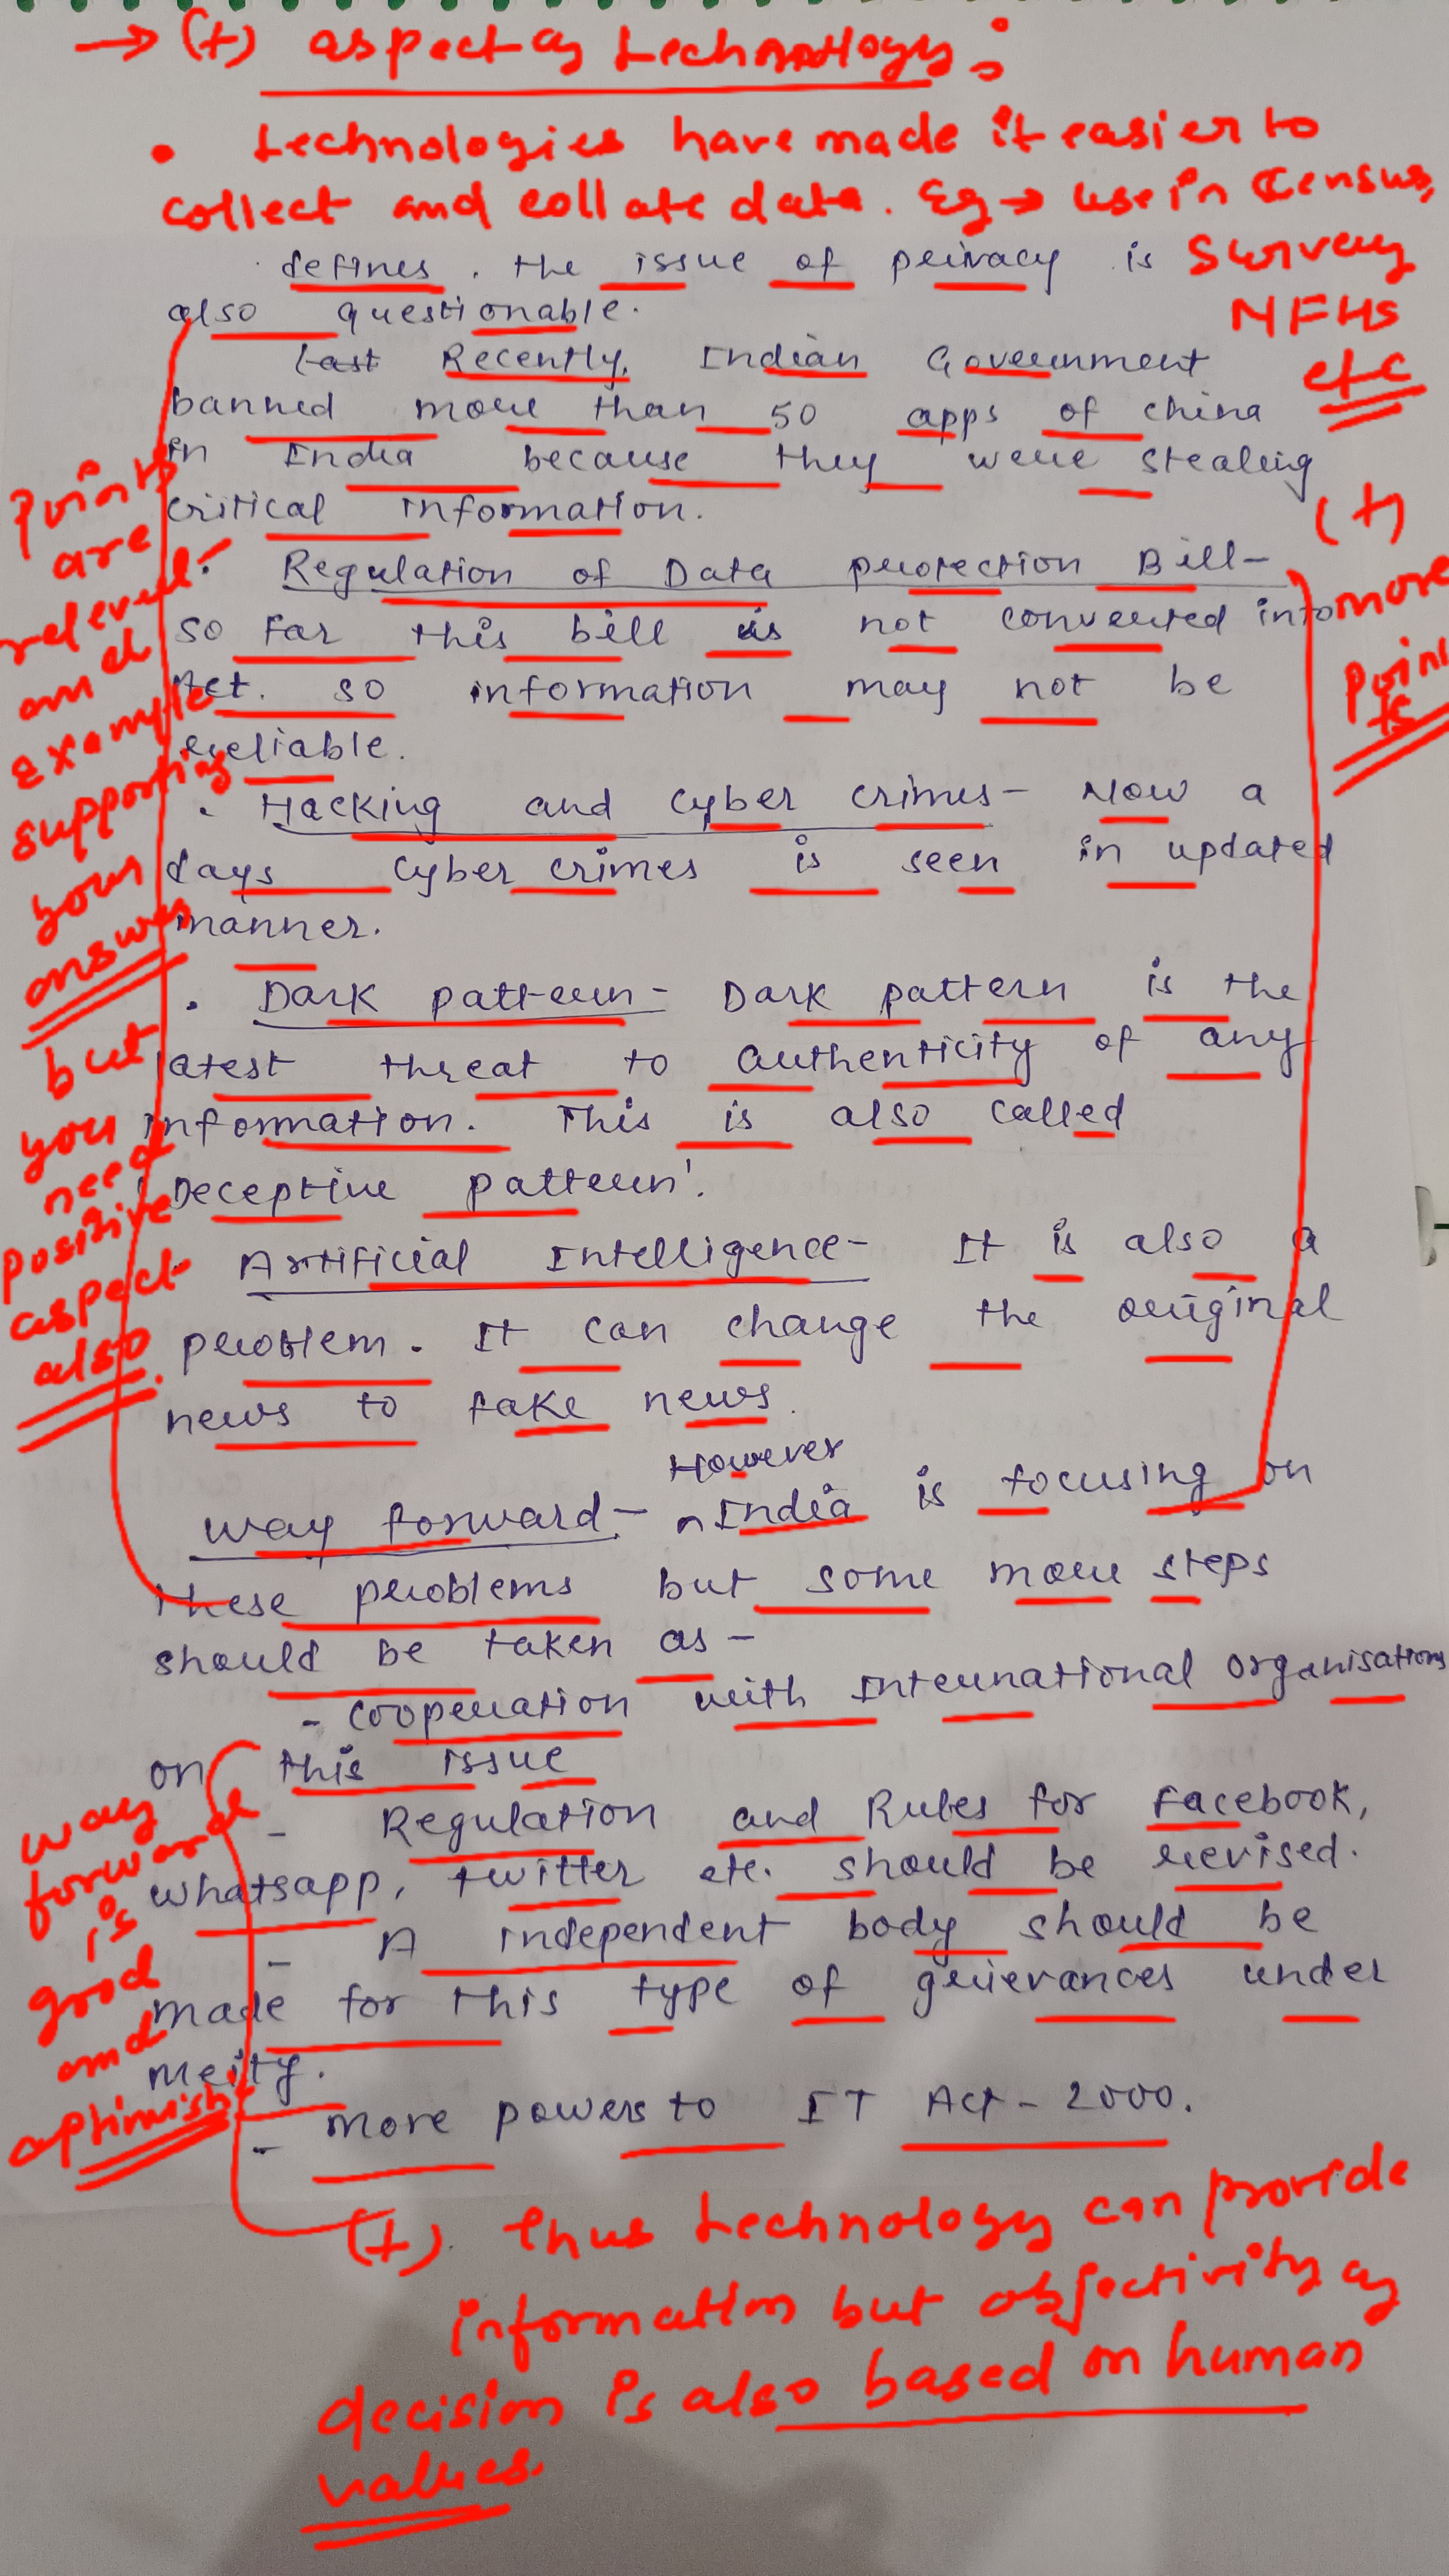 → (+) aspect of technology:
• technologies have made it easier to
collect and collate data. Eg → use in Census,
survey
NFHS
etc
defines. the issue of privacy is
also questionable.
Last Recently, Indian Government
banned more than 50 apps of china
in India because they were stealing
critical information.
. Regulation of Data protection Bill-
so far this bill is not converted into
Act. so information may not be
reliable.
. Hacking and cyber crimes- Now a
days cyber crimes is seen in updated
manner.
. Dark pattern- Dark pattern is the
latest threat to authenticity of any
information. This is also called
'Deceptive pattern'.
. Artificial Intelligence- It is also a
problem. It can change the original
news to fake news.
However
way forward- India is focusing on
these problems but some more steps
should be taken as -
- cooperation with International organisations
on this issue
- Regulation and Rules for Facebook,
whatsapp, twitter etc. should be revised.
- A independent body should be
made for this type of grievances under
meity.
- more powers to IT Act-2000.
Points
are
relevent
and
example
supporting
your
answer
but
you
need
positive
aspect
also.
(+)
more
points
way
forward
is
good
and
optimish
(+). thus technology can provide
information but objectivity of
decision is also based on human
values.